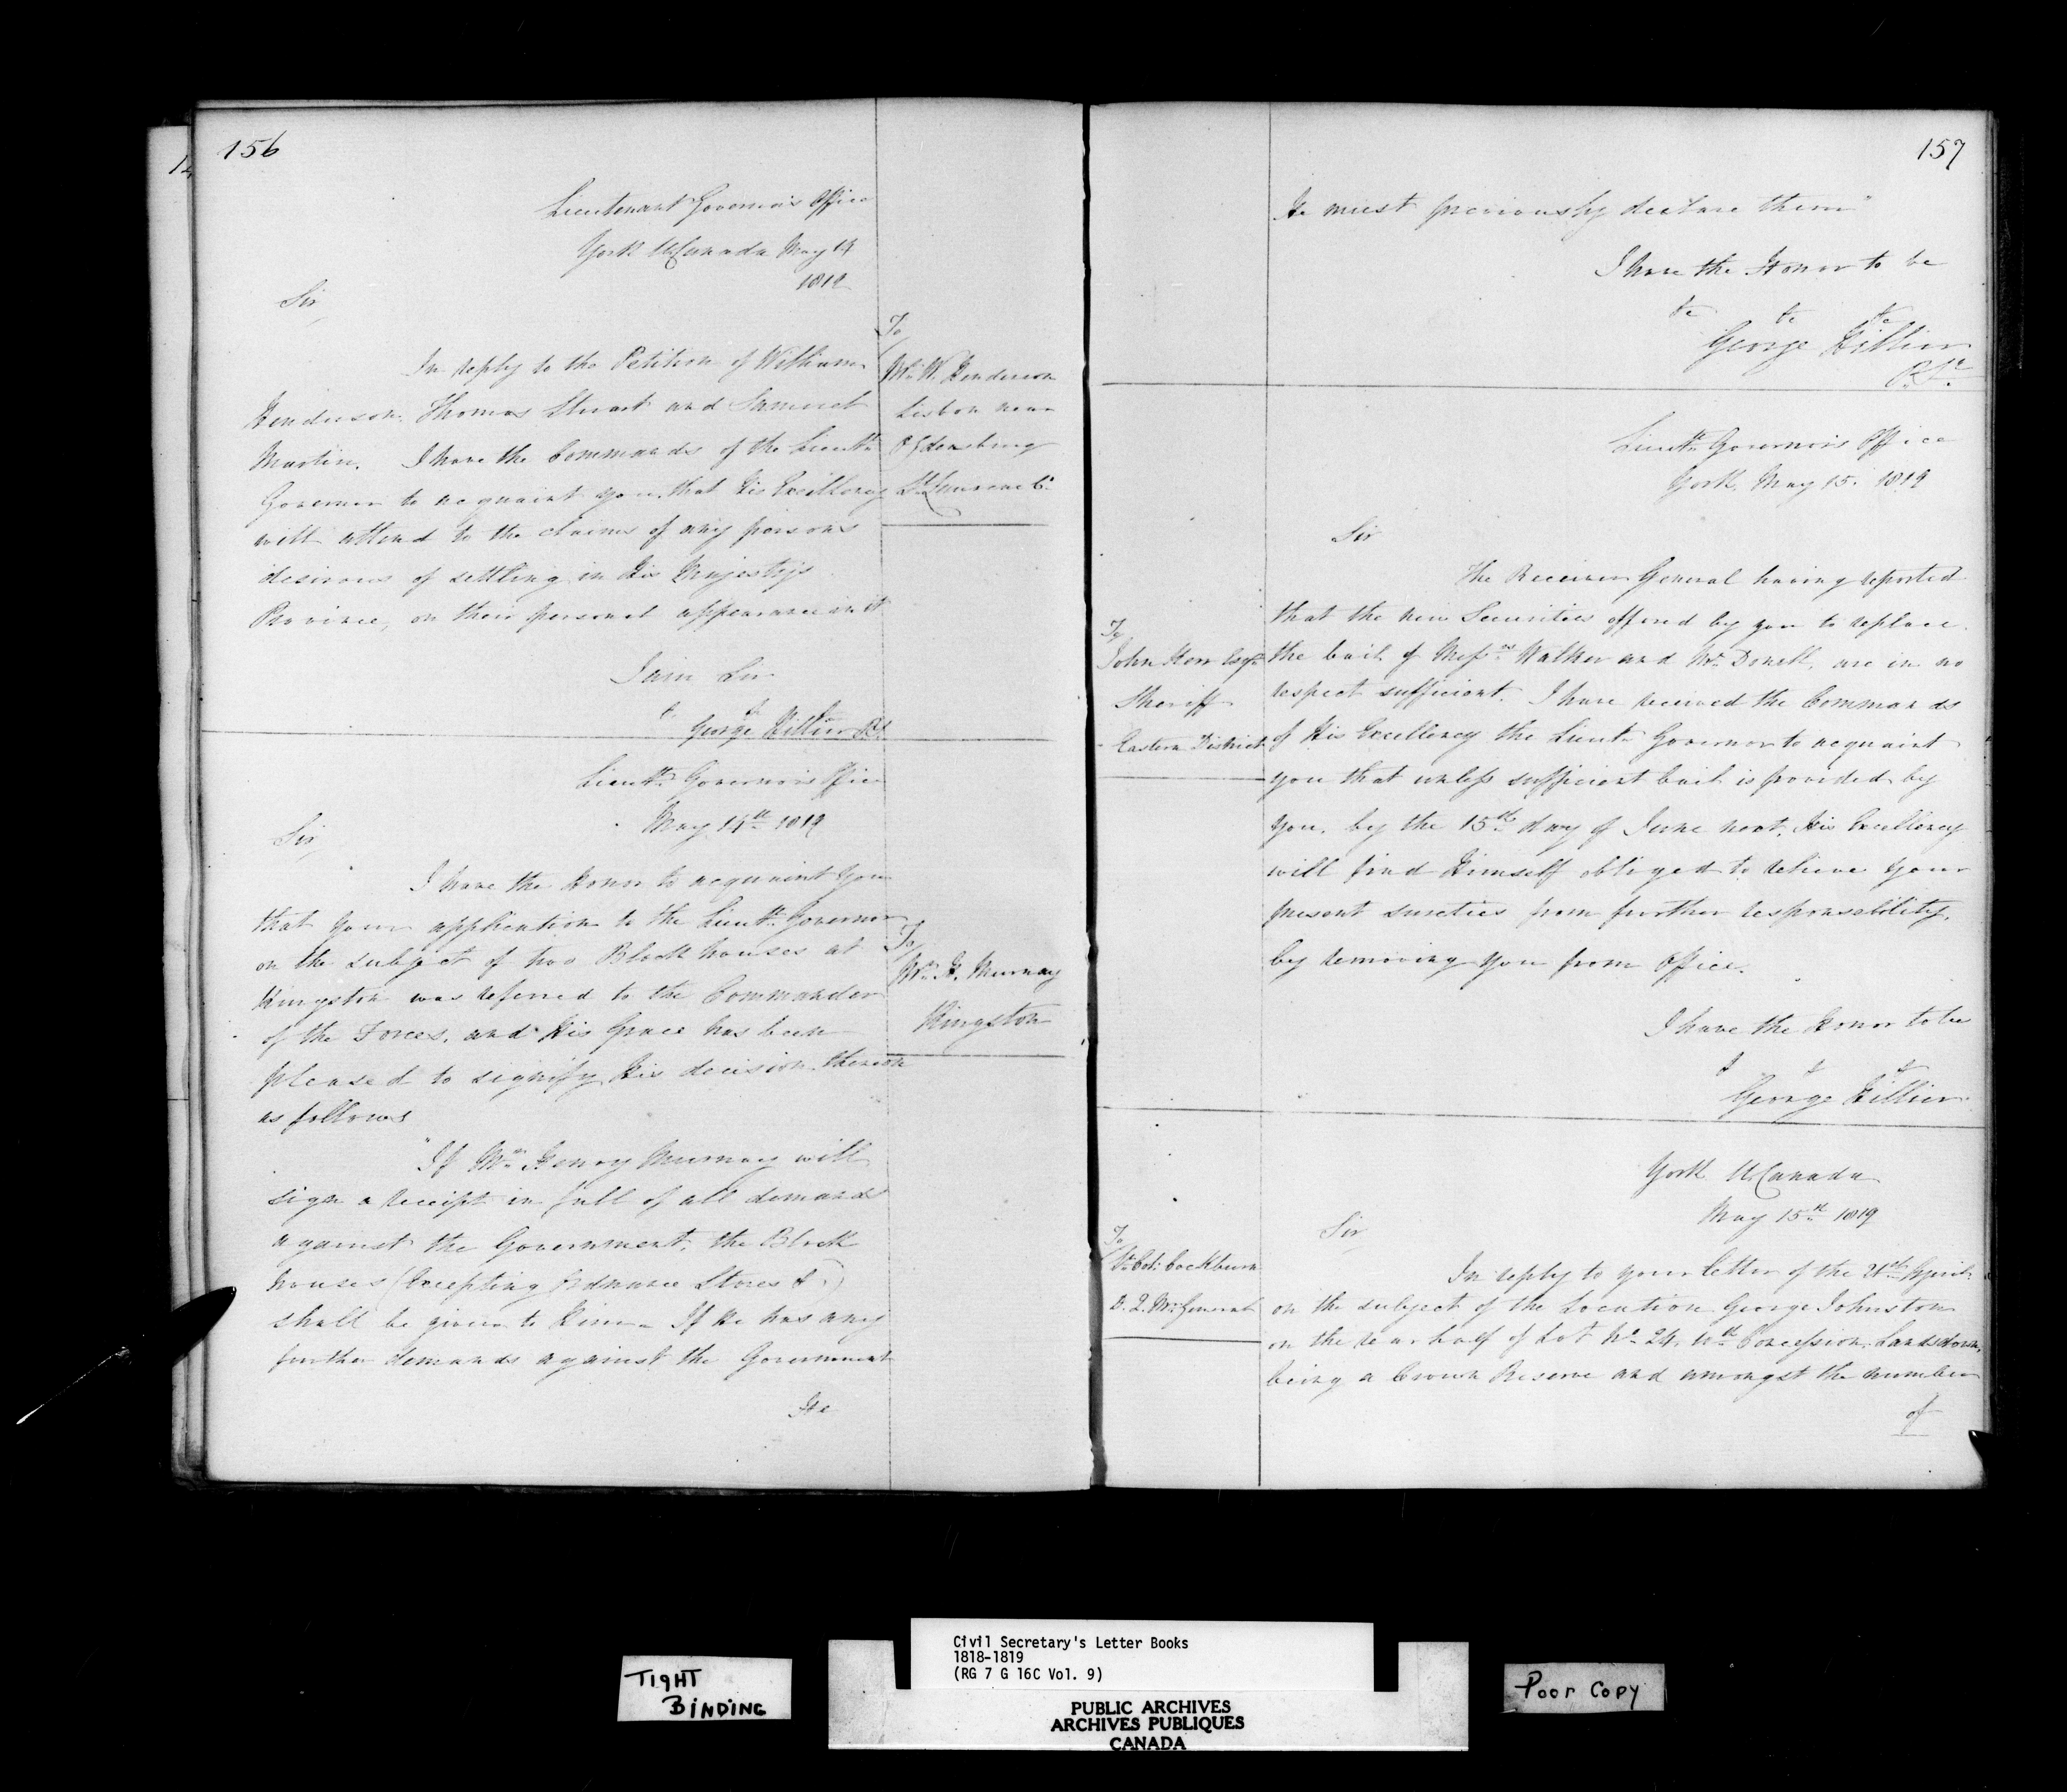 156
Lieutenant Governor's Office
York U Canada May 14
1819
Sir,
To
Mr. W. Henderson
Lisbon near
Ogdensburg
St. Lawrence Cy.
In reply to the Petition of William
Henderson, Thomas Stuart and Samuel
Martin. I have the Commands of the Lieutt.
Governor to acquaint you, that His Excellency
will attend to the claims of any persons
desirous of settling in His Majesty's
Province, on their personal appearance in it
I am Sir
&c &c &c
George Hillier P.S.
Lieutt. Governor's Office
May 14th 1819
Sir,
To
Mr. H. Murray
Kingston
I have the Honor to acquaint you
that your application to the Lieutt. Governor
on the subject of two Block houses at
Kingston was referred to the Commander
of the Forces, and His Grace has been
pleased to signify His decision thereon
as follows
"If Mr. Henry Murray will
sign a receipt in full of all demands
against the Government, the Block
houses (Excepting Ordnance Stores &c)
shall be given to Him. If He has any
further demands against the Government
He
157
He must previously declare them"
I have the Honor to be
&c &c &c
George Hillier
P. Sy.
Lieutt. Governor's Office
York, May 15. 1819
Sir
To
John Kerr Esqr.
Sheriff
Eastern District
The Receiver General having reported
that the new Securities offered by you to replace
the bail of Messrs. Walker and McDonell, are in no
respect sufficient. I have received the Commands
of His Excellency the Lieutt. Governor to acquaint
you that unless sufficient bail is provided by
you, by the 15th day of June next, His Excellency
will find Himself obliged to relieve your
present sureties from further responsability,
by removing you from Office.
I have the Honor to be
&c &c &c
George Hillier
York U Canada
May 15th 1819
Sir
To
Lt. Col: Cockburn
D. Q. Mr. General
In reply to your letter of the 21st April
on the subject of the Location George Johnston
on the rear half of Lot No. 24, 10th Concession, Landsdown,
being a Crown Reserve and amongst the number
of
TIGHT
BINDING
Civil Secretary's Letter Books
1818-1819
(RG 7 G 16C Vol. 9)
PUBLIC ARCHIVES
ARCHIVES PUBLIQUES
CANADA
Poor Copy